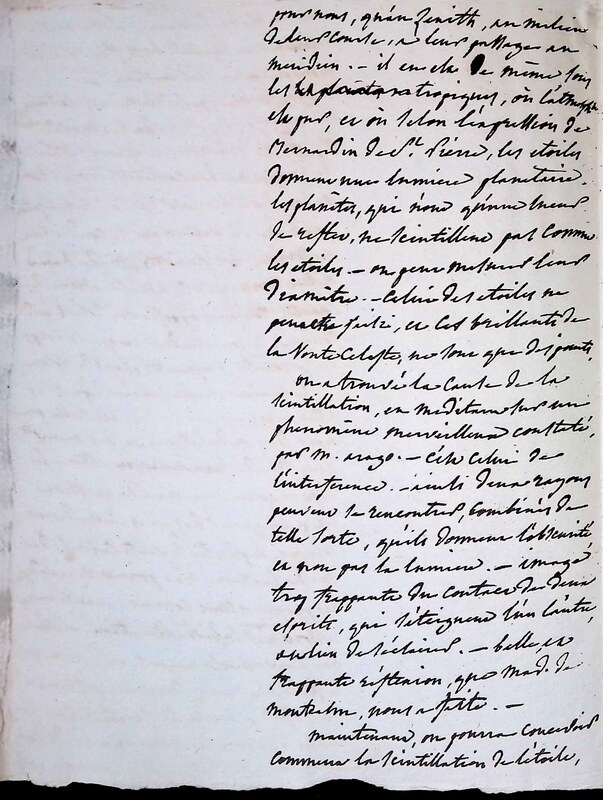 pour nous, qu'au Zenith, au milieu
de leur course, a leur passage au
meridien. — il en est de même sous
les tropiques, où l'atmosphere
est pur, et où selon l'expression de
Bernardin de St. Pierre, les etoiles
donnent une lumiere planetaire.
les planètes, qui n'ont qu'une lueur
de reflet, ne scintillent pas comme
les etoiles. — on peut mesurer leur
diamêtre. — Celui des etoiles ne
peut être fixé, et ces brillants de
la Voute Celeste, ne sont que des points,
on a trouvé la Cause de la
scintillation, en meditant sur un
phenomène merveilleux constaté,
par M. arago. — C'est Celui de
l'interference. — ainsi deux rayons
peuvent se rencontrer, combinés de
telle sorte, qu'ils donnent l'obscurité,
et non pas la lumiere. — image
trop frappante du contact de deux
esprits, qui s'éteignent l'un l'autre,
au lieu de s'éclairer. — belle et
frappante réflexion, que Mad. de
nous a faite. —
maintenant, on pourra concevoir
comment la scintillation de l'étoile,